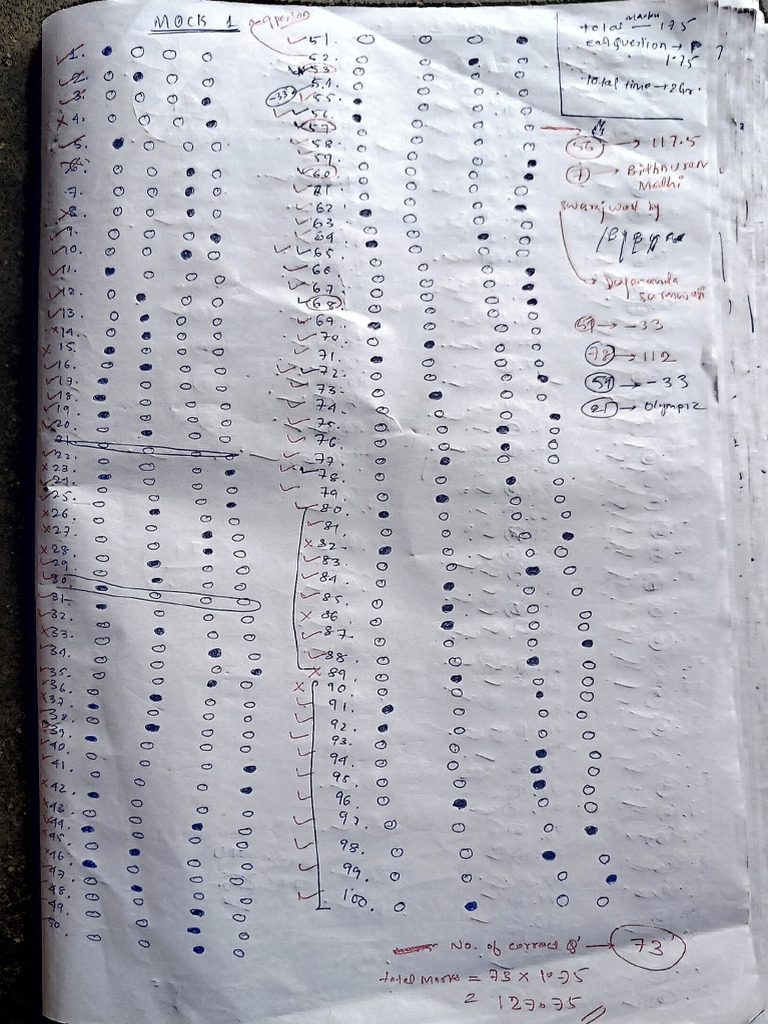 MOCK 1
total marks — 175
each question → 1.75
Total time → 2hr.
1.
2.
3.
4.
5.
7.
8.
9.
10.
11.
12.
13.
14.
15.
16.
17.
18.
19.
20.
21.
22.
23.
24.
25.
26.
27.
28.
29.
30.
31.
32.
33.
34.
35.
36.
37.
38.
39.
40.
41.
42.
43.
44.
45.
46.
47.
48.
49.
50.
51.
52.
53.
54.
-33
55.
56.
57
58
59.
60.
61
62
63
64
65
66
67
68.
69.
70.
71.
72.
73.
74.
75.
76
77
78.
79
80.
81.
82.
83
84.
85.
86
87.
88.
89.
90.
91.
92.
93.
94.
95.
96
97.
98.
99.
100.
→ 117.5
swaraj word by
→ Dayananda Saraswati
59 → -33
78 → 112
59 → -33
21 → Olympiz
No. of correct Q → 73
total Marks = 73 × 1.75
= 127.75